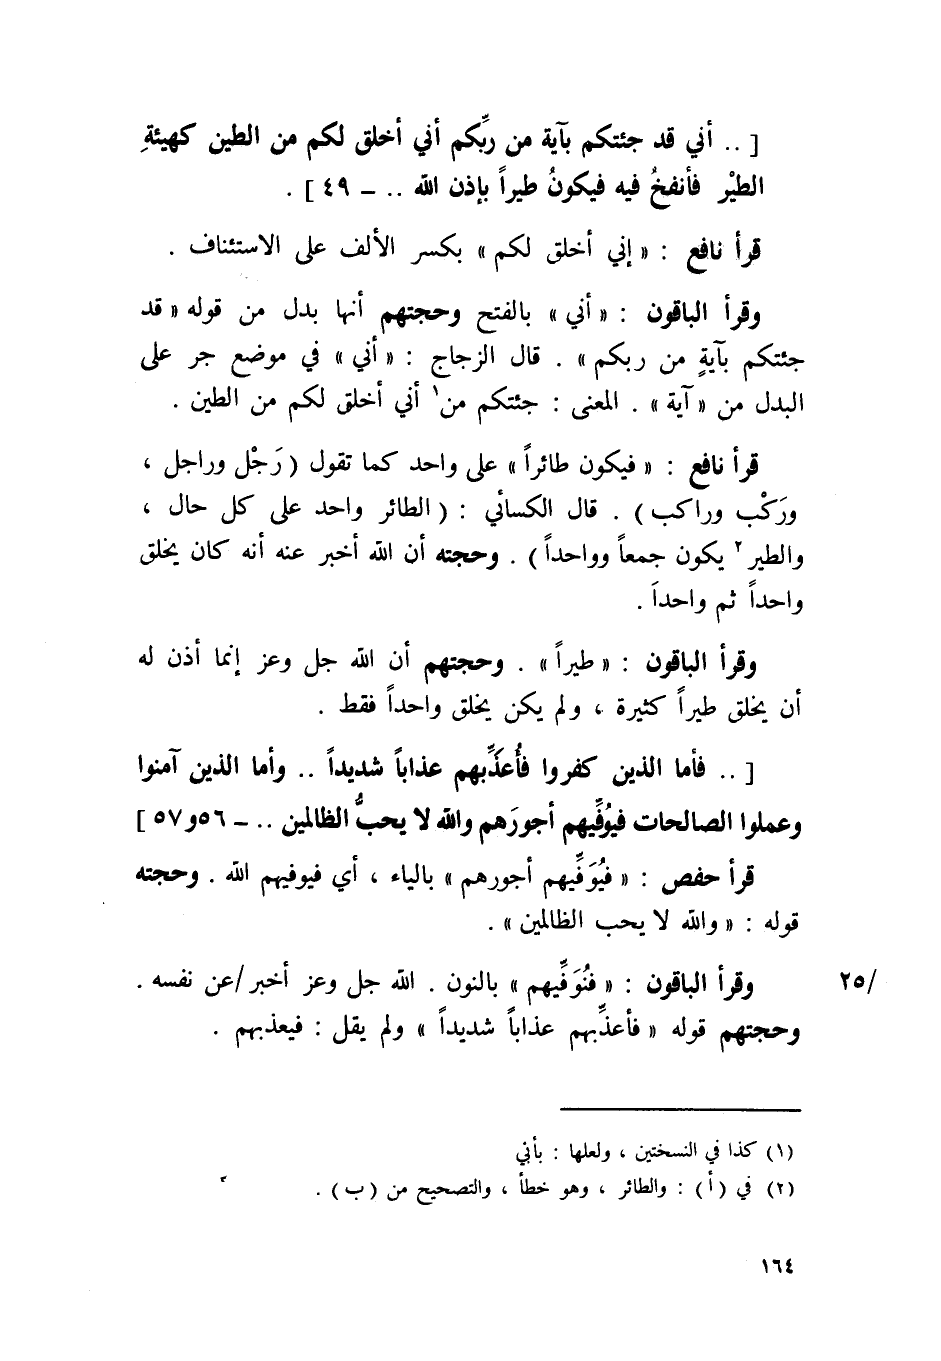 [ .. أني قد جئتكم بآية من ربِّكم أني أخلق لكم من الطين كهيئةِ
الطيْر فأنفخُ فيه فيكونُ طيراً بإذن الله .. ــ ٤٩ ] .
قرأ نافع : « إني أخلق لكم » بكسر الألف على الاستئناف .
وقرأ الباقون : « أني » بالفتح وحجتهم أنها بدل من قوله « قد
جئتكم بآيةٍ من ربكم » . قال الزجاج : « أني » في موضع جر على
البدل من « آية » . المعنى : جئتكم من١ أني أخلق لكم من الطين .
قرأ نافع : « فيكون طائراً » على واحد كما تقول ( رَجْل وراجل ،
ورَكْب وراكب ) . قال الكسائي : ( الطائر واحد على كل حال ،
والطير٢ يكون جمعاً وواحداً ) . وحجته أن الله أخبر عنه أنه كان يخلق
واحداً ثم واحداً .
وقرأ الباقون : « طيراً » . وحجتهم أن الله جل وعز إنما أذن له
أن يخلق طيراً كثيرة ، ولم يكن يخلق واحداً فقط .
[ .. فأما الذين كفروا فأُعذِّبهم عذاباً شديداً .. وأما الذين آمنوا
وعملوا الصالحات فيُوَفِّيهم أجورَهم والله لا يحبُّ الظالمين .. ــ ٥٦و٥٧ ]
قرأ حفص : « فيُوَفِّيهم أجورهم » بالياء ، أي فيوفيهم الله . وحجته
قوله : « والله لا يحب الظالمين » .
/٢٥ وقرأ الباقون : « فنُوَفِّيهم » بالنون . الله جل وعز أخبر /عن نفسه .
وحجتهم قوله « فأعذِّبهم عذاباً شديداً » ولم يقل : فيعذبهم .
(١) كذا في النسختين ، ولعلها : بأني
(٢) في ( أ ) : والطائر ، وهو خطأ ، والتصحيح من ( ب ) .
١٦٤